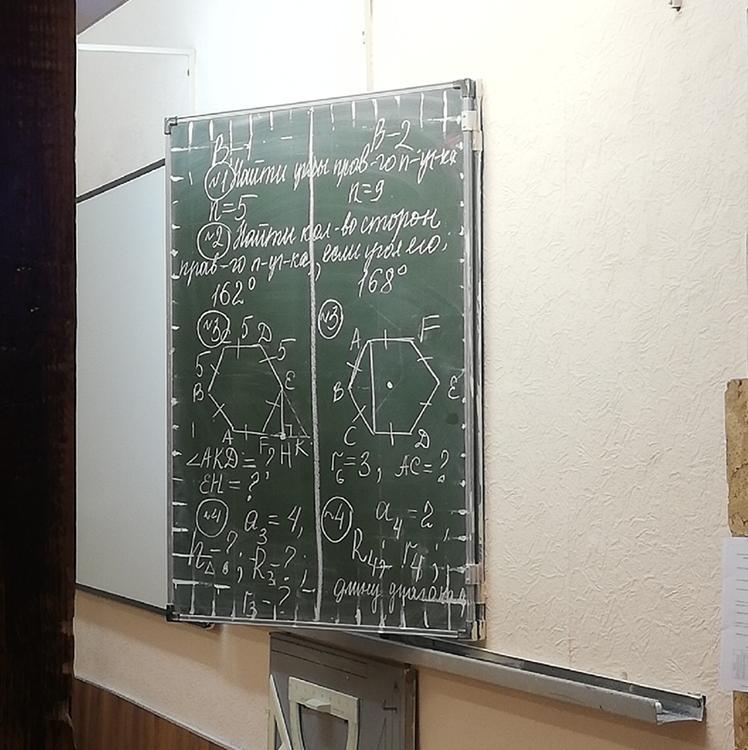 В-1
В-2
№1 Найти углы прав-го п-уг-ка
n=5
n=9
№2 Найти кол-во сторон
прав-го п-уг-ка, если угол его,
162°
168°
№3
C 5 D
5 5
B E
A F H K
∠AKD = ?
EH = ?
№3
A F
B E
C D
r₆=3, AC=?
№4 a₃ = 4,
h△-?; R₃-?
r₃-?
№4 a₄ = 2
R₄; r₄;
длину диагонали